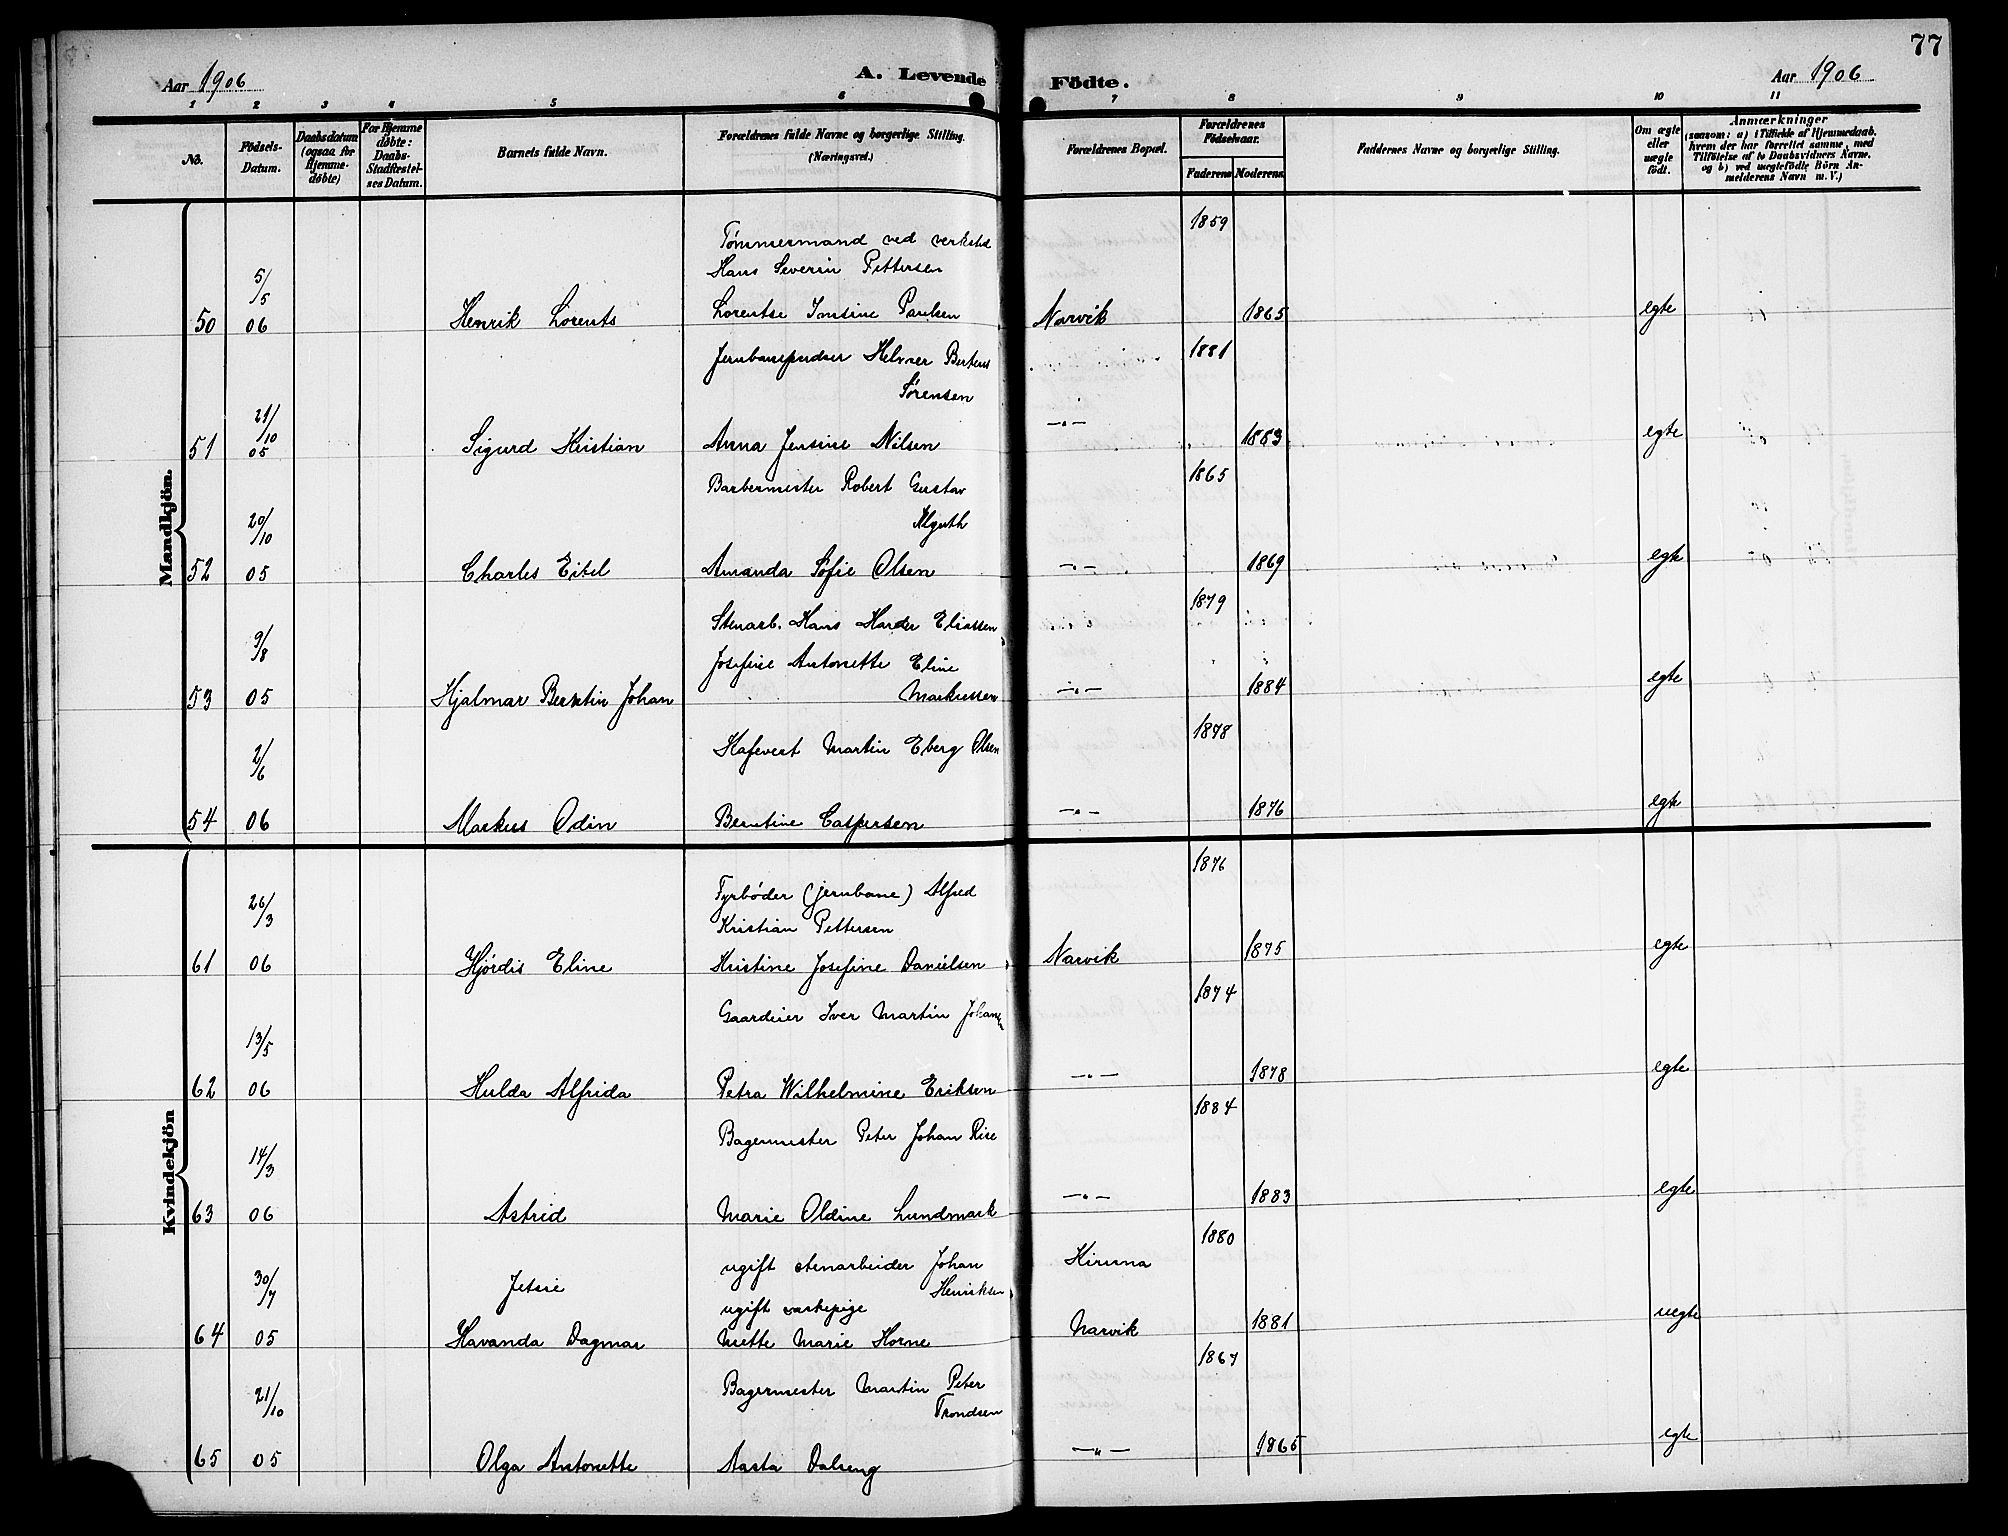 77
Aar 1906
A. Levende Födte.
Aar 1906
1 2 3 4 5 6 7 8 9 10 11
No.
Födsels-Datum.
Daabsdatum (ogsaa for Hjemme-døbte)
For Hjemme døbte: Daabs-Stadfæstel-ses Datum.
Barnets fulde Navn.
Forældrenes fulde Navne og borgerlige Stilling. (Næringsvei.)
Forældrenes Bopæl.
Forældrenes Födselsaar.
Faderens Moderens
Faddernes Navne og borgerlige Stilling.
Om ægte eller uægte født.
Anmærkninger
(saasom: a) i Tilfælde af Hjemmedaab.
hvem der har forrettet samme, med
Tilføielse af to Daabsvidners Navne.
og b) ved uægtefødte Börn An-
melderens Navn m. V.)
Mandkjön.
1859
Tømmermand ved verksted
Hans Severin Pettersen
5/5
50 06 Henrik Lorents Lorentse Jensine Paulsen Narvik 1865 egte
Jernbanepudser Helmer Bertens 1881
Sørensen
21/10
51 05 Sigurd Kristian Anna Jensine Nilsen -"- 1883 egte
Barbermester Robert Gustav 1865
Alguth
20/10
52 05 Charles Eitel Amanda Sofie Olsen -"- 1869 egte
1879
Stenarb. Hans Harder Eliassen
9/8
Josefine Antonette Eline
53 05 Hjalmar Berntin Johan Markussen -"- 1884 egte
1878
2/6 Hafevert Martin Eberg Olsen
54 06 Markus Odin Berntine Caspersen -"- 1876 egte
Kvindekjön
1876
Fyrbøder (jernbane) Alfred
26/3 Kristian Pettersen
61 06 Hjördis Eline Kristine Josefine Danielsen Narvik 1875 egte
1874
Gaardeier Iver Martin Johansen
13/5
62 06 Hulda Alfrida Petra Wilhelmine Eriksen -"- 1878 egte
1884
Bagermester Peter Johan Rise
14/3
63 06 Astrid Marie Oldine Lundmark -"- 1883 egte
1880
ugift stenarbeider Johan Kiruna
30/7 Jetsie Henriksen
ugift vaskepige
64 05 Havanda Dagmar Mette Marie Horne Narvik 1881 uegte
1867
Bagermester Martin Peter
21/10 Trondsen
65 05 Olga Antonette Aasta Dalseng -"- 1865 egte